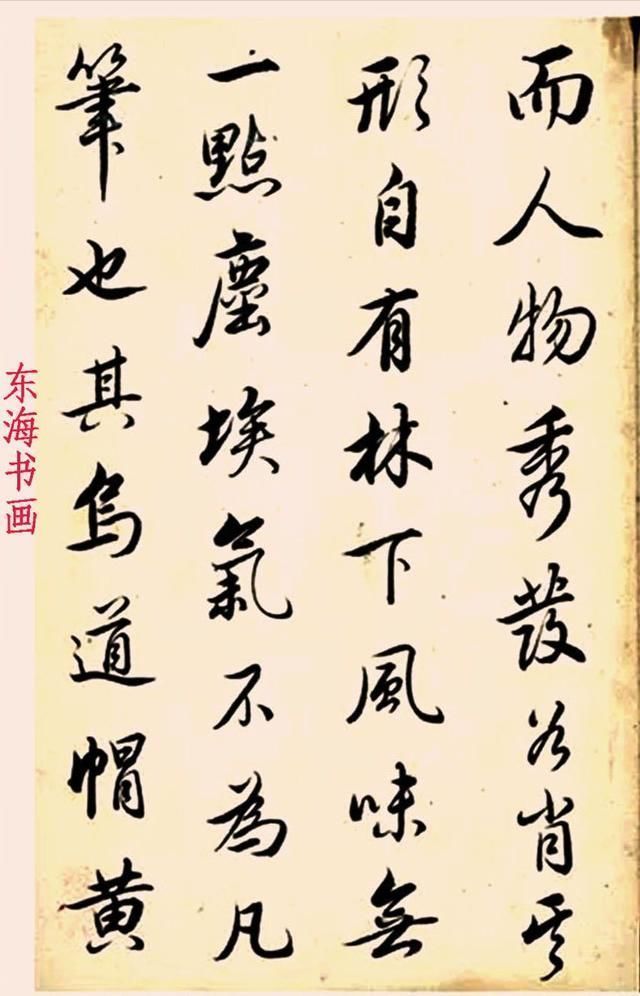 而人物秀發各肖其
形自有林下風味無
一點塵埃氣不為凡
筆也其烏道帽黃
东海书画